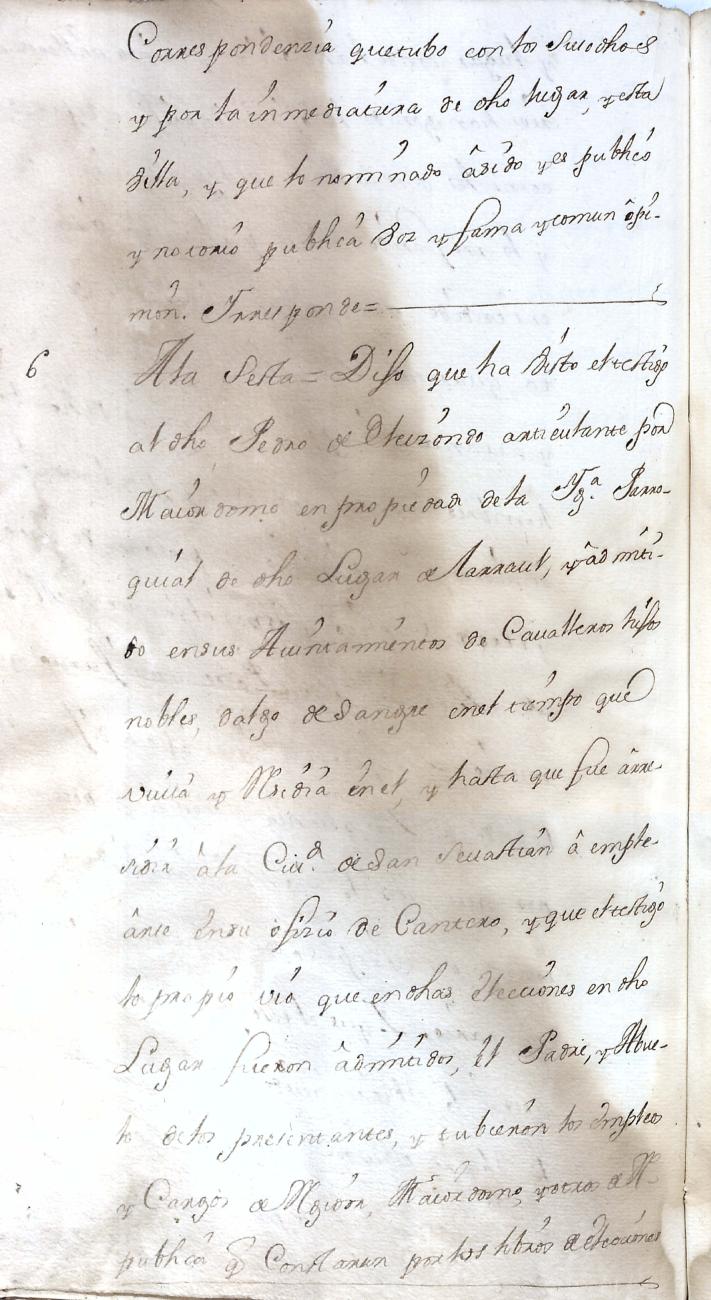 Correspondenzia quetubo con los Suso dhos
y por la inmediatura de dho lugar, y esta
Villa, y que lo nominado â sido y es publico
y notorio publica Voz y fama y comun ôpi-
nion. Y rresponde=
6
A la Sesta = Dijo que ha visto el testigo
al dho Pedro de Eleizondo articulante por
Maiordomo en propiedad de la Yg.ª Parro-
quial, de dho Lugar de Larraul, y âdmiti-
do en sus Aiuntamientos de Cavalleros hijos
nobles, dalgo de Sangre en el tiempo que
viuia y Residia en el, y hasta que fue â rre-
sidir â la Ciu.d de San Seuastian â emple-
arse en su ofizio de Cantero, y que el testigo
lo propio vio que en dhas Elecciones en dho
Lugar fueron âdmitidos, el Padre, y Abue-
lo de los presentantes, y tubieron los Empleos
y Cargos de Rejidor, Maiordomo, y otros de R.
publica q Constaran por los libros de elecciones